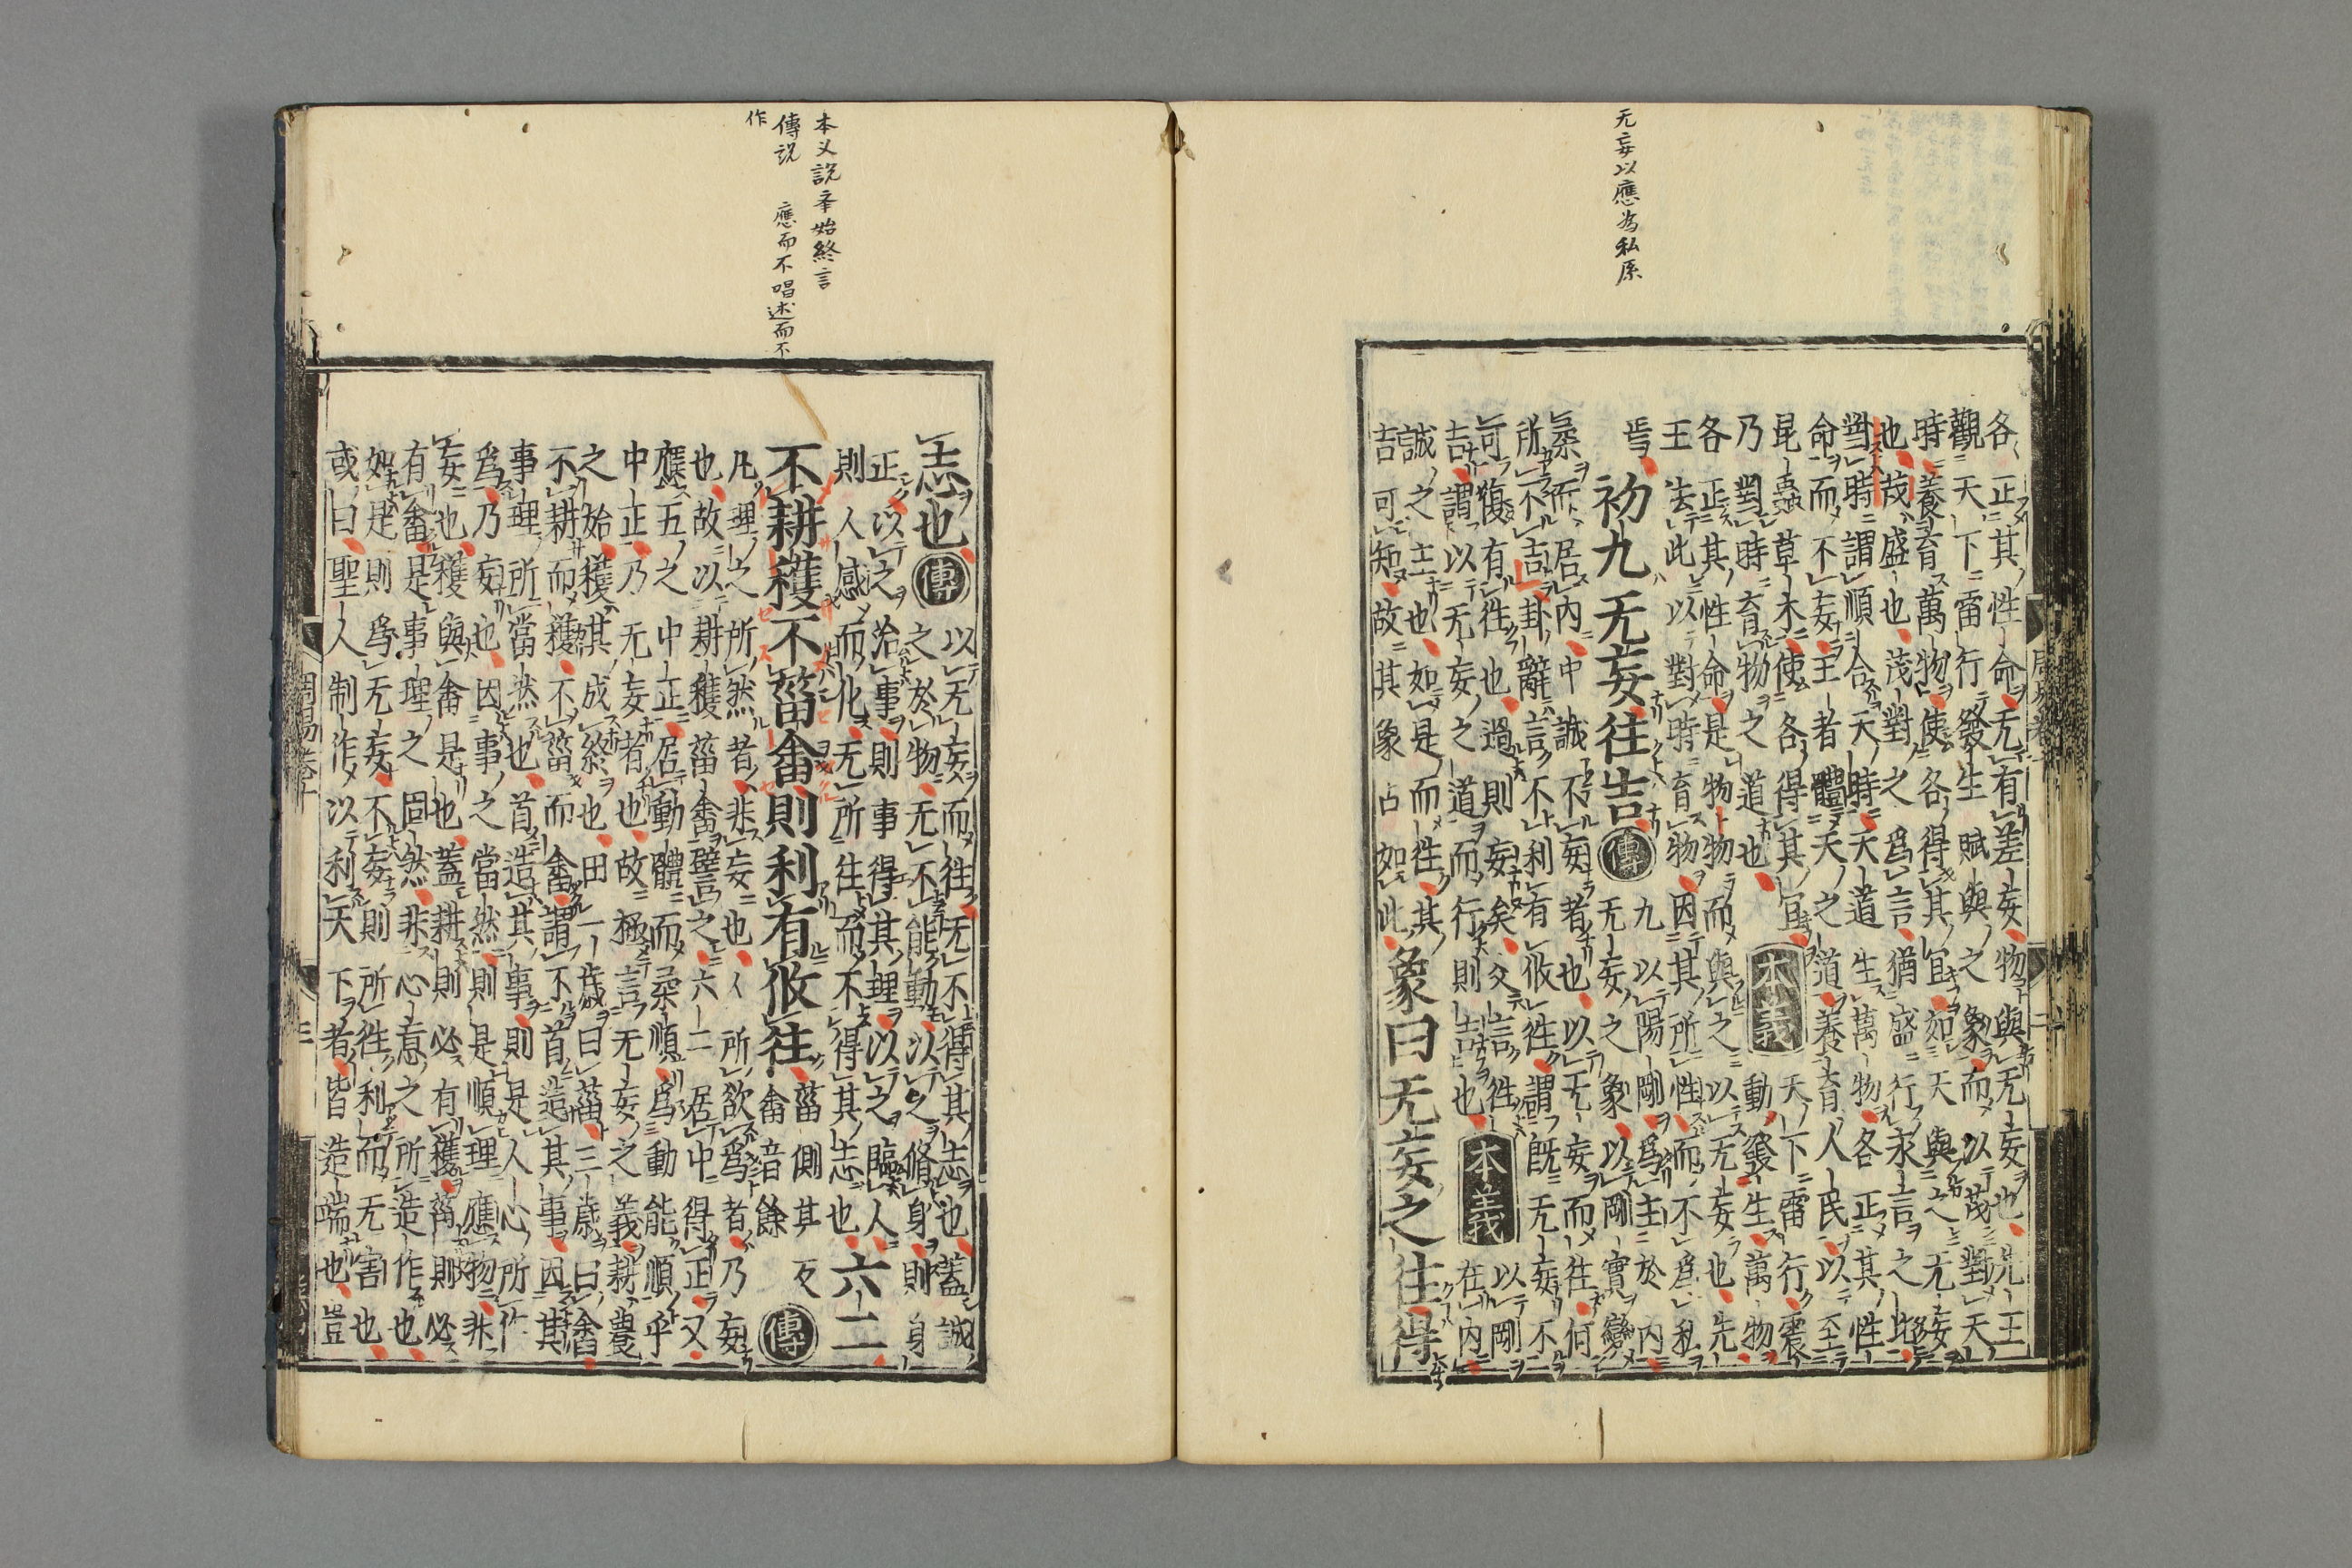 无妄以應為私系
各正其性命无有差妄物與无妄也先王
觀天下雷行發生賦與之象而以茂對天
時養育萬物使各得其宜如天與之无妄
也茂盛也茂對之爲言猶盛行永言之比
對時謂順合天時天道生萬物各正其性
命而不妄王者體天之道養育人民以至
昆蟲草木使各得其宜
乃對時育物之道也
本義
天下雷行震
動發生萬物
各正其性命是物物而與之以无妄也先
王法此以對時育物因其所性而不爲私
焉
初九无妄往吉
傳
九以陽剛爲主於内
无妄之象以剛實變
柔而居内中誠不妄者也以无妄而往何
所不吉卦辭言不利有攸往謂既无妄不
可復有往也過則妄矣爻言往
吉謂以无妄之道而行則吉也
本義
以剛
在内
誠之主也如是而往其
吉可知故其象占如此
象曰无妄之往得
本义說 始終言
傳說 應而不唱述而不
作
志也
傳
以无妄而往无不得其志也蓋誠
之於物无不能動以之脩身則身
正以之治事則事得其理以之臨人
則人感而化无所往而不得其志也
六二
不耕穫不菑畬則利有攸往
菑側其反
畬音餘
傳
凡理之所然者非妄也人所欲爲者乃妄
也故以耕穫菑畬譬之六二居中得正又
應五之中正居動體而柔順爲動能順乎
中正乃无妄者也故極言无妄之義耕農
之始穫其成終也田一歲曰菑三歲曰畬
不耕而穫不菑而畬謂不首造其事因其
事理所當然也首造其事則是人心所作
爲乃妄也因事之當然則是順理應物非
妄也穫與畬是也蓋耕則必有穫菑則必
有畬是事理之固然非心意之所造作也
如是則爲无妄不妄則所往利而无害也
或曰聖人制作以利天下者皆造端也豈